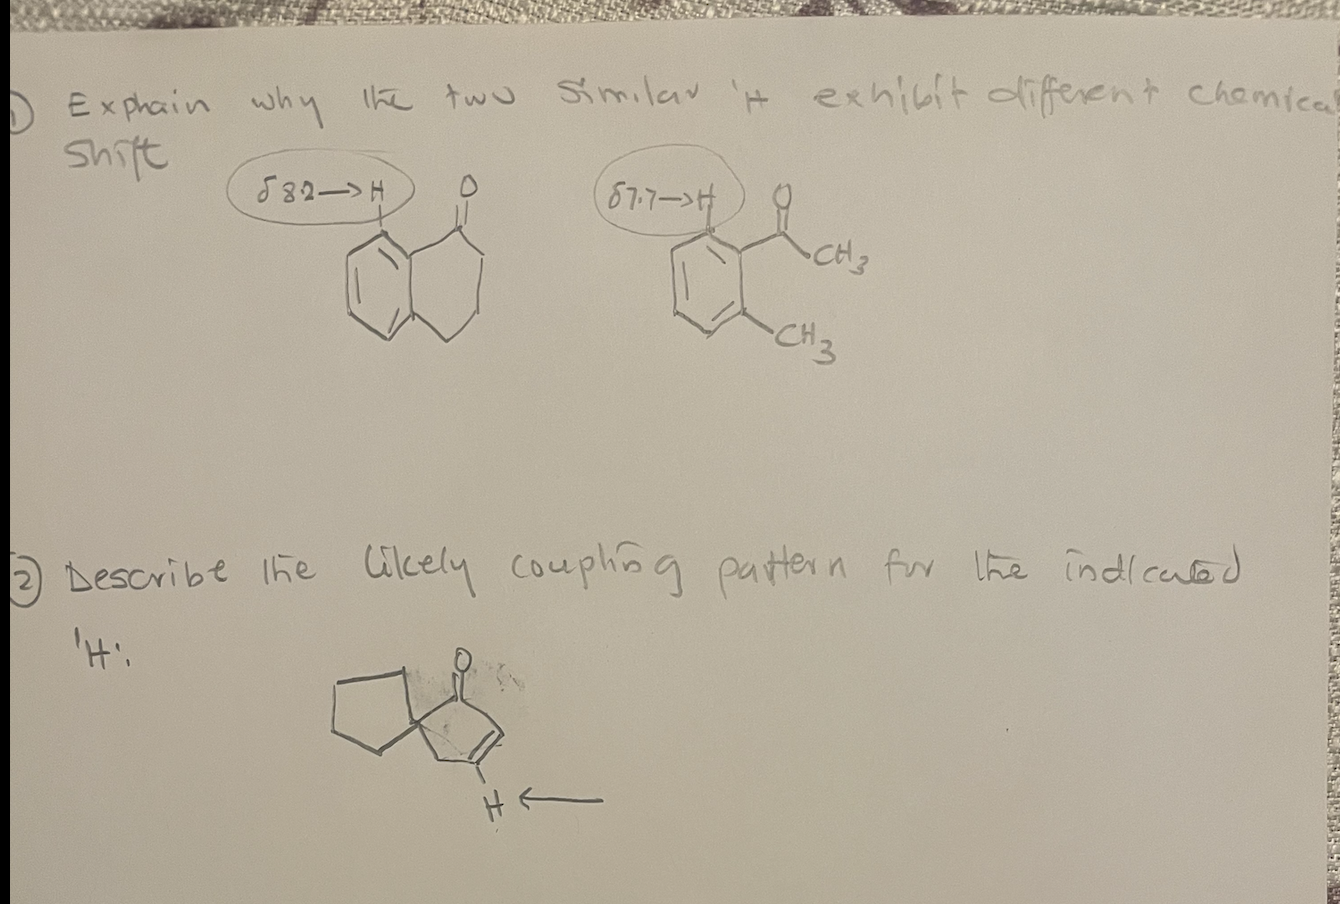 1) Explain why the two similar 'H exhibit different chemical
shift
δ 8.2→H O δ7.7→H O
CH3
CH3
2) Describe the likely coupling pattern for the indicated
'H:
O
H ←